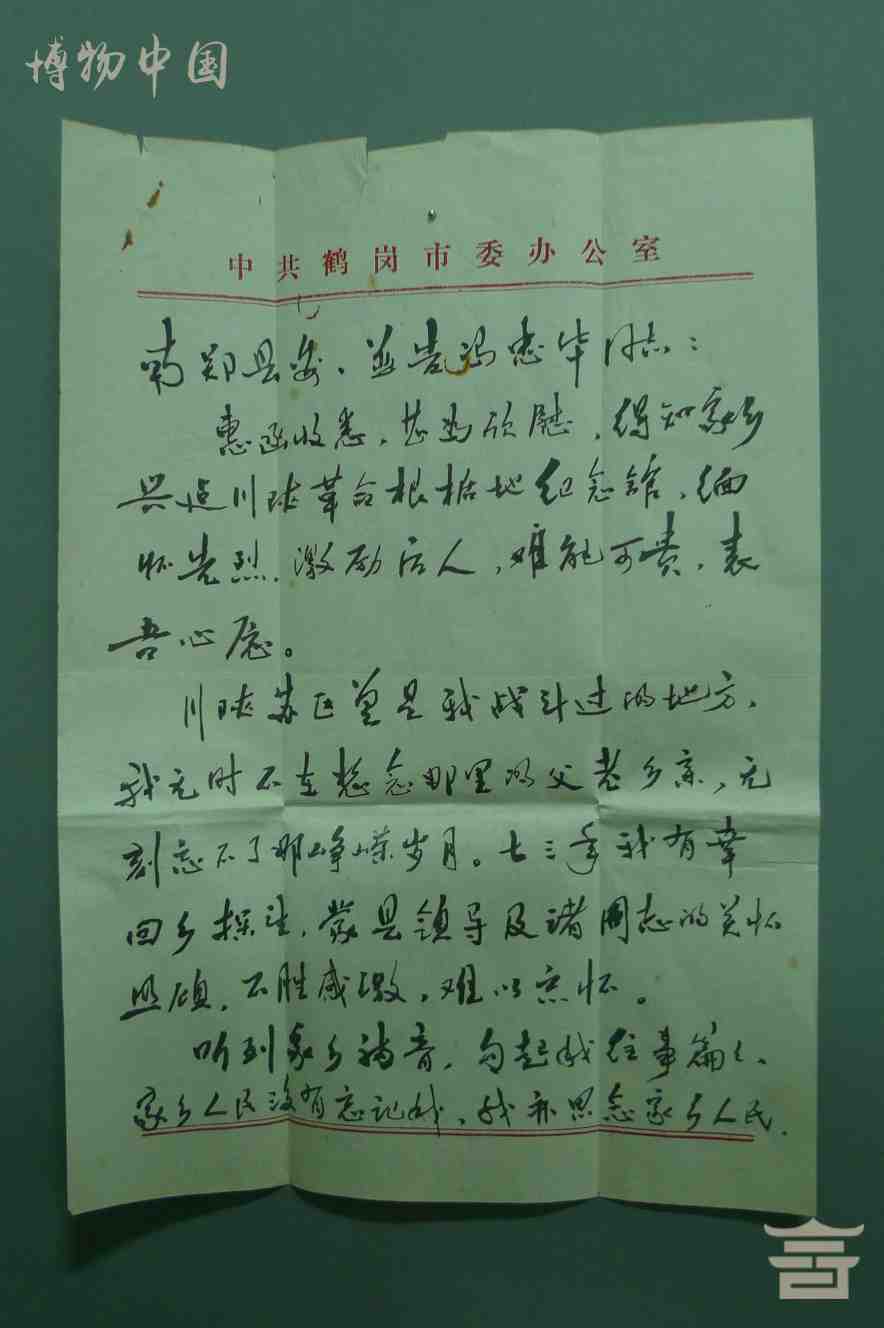 博物中国
中共鹤岗市委办公室
南郑县委、并告冯忠华同志：
惠函收悉，甚为欣慰，得知家乡
兴造川陕革命根据地纪念馆，缅
怀先烈，激励后人，难能可贵，表
吾心愿。
川陕苏区曾是我战斗过的地方，
我无时不在想念那里的父老乡亲，无
刻忘不了那峥嵘岁月。七三年我有幸
回乡探望，蒙县领导及诸同志的关怀
照顾，不胜感激，难以忘怀。
听到家乡福音，勾起我往事篇篇，
家乡人民没有忘记我，我亦思念家乡人民，